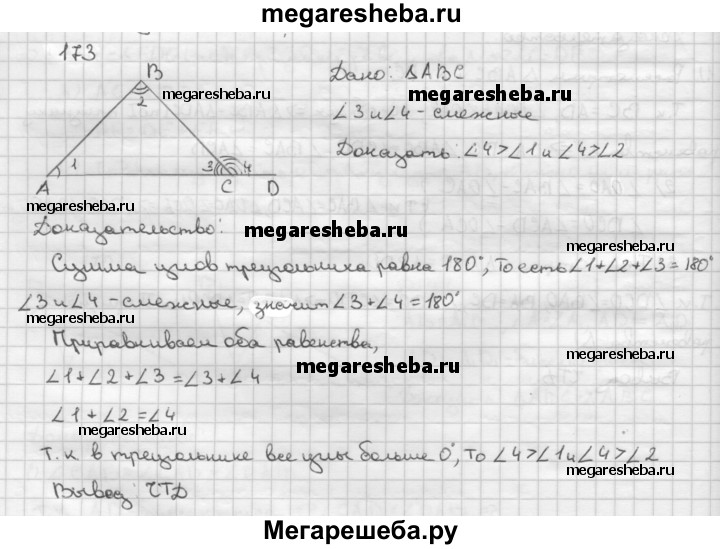 megaresheba.ru
173
B
2
A
1
3
4
C
D
megaresheba.ru
Дано: ΔABC
megaresheba.ru
∠3 и ∠4 - смежные
Доказать: ∠4 > ∠1 и ∠4 > ∠2
megaresheba.ru
Доказательство:
megaresheba.ru
megaresheba.ru
Сумма углов треугольника равна 180°, то есть ∠1+∠2+∠3=180°
∠3 и ∠4 - смежные, значит ∠3+∠4=180°
megaresheba.ru
Приравниваем оба равенства,
megaresheba.ru
megaresheba.ru
∠1+∠2+∠3=∠3+∠4
∠1+∠2=∠4
megaresheba.ru
Т.к в треугольнике все углы больше 0°, то ∠4>∠1 и ∠4>∠2
megaresheba.ru
Вывод: ЧТД
Мегарешеба.ру